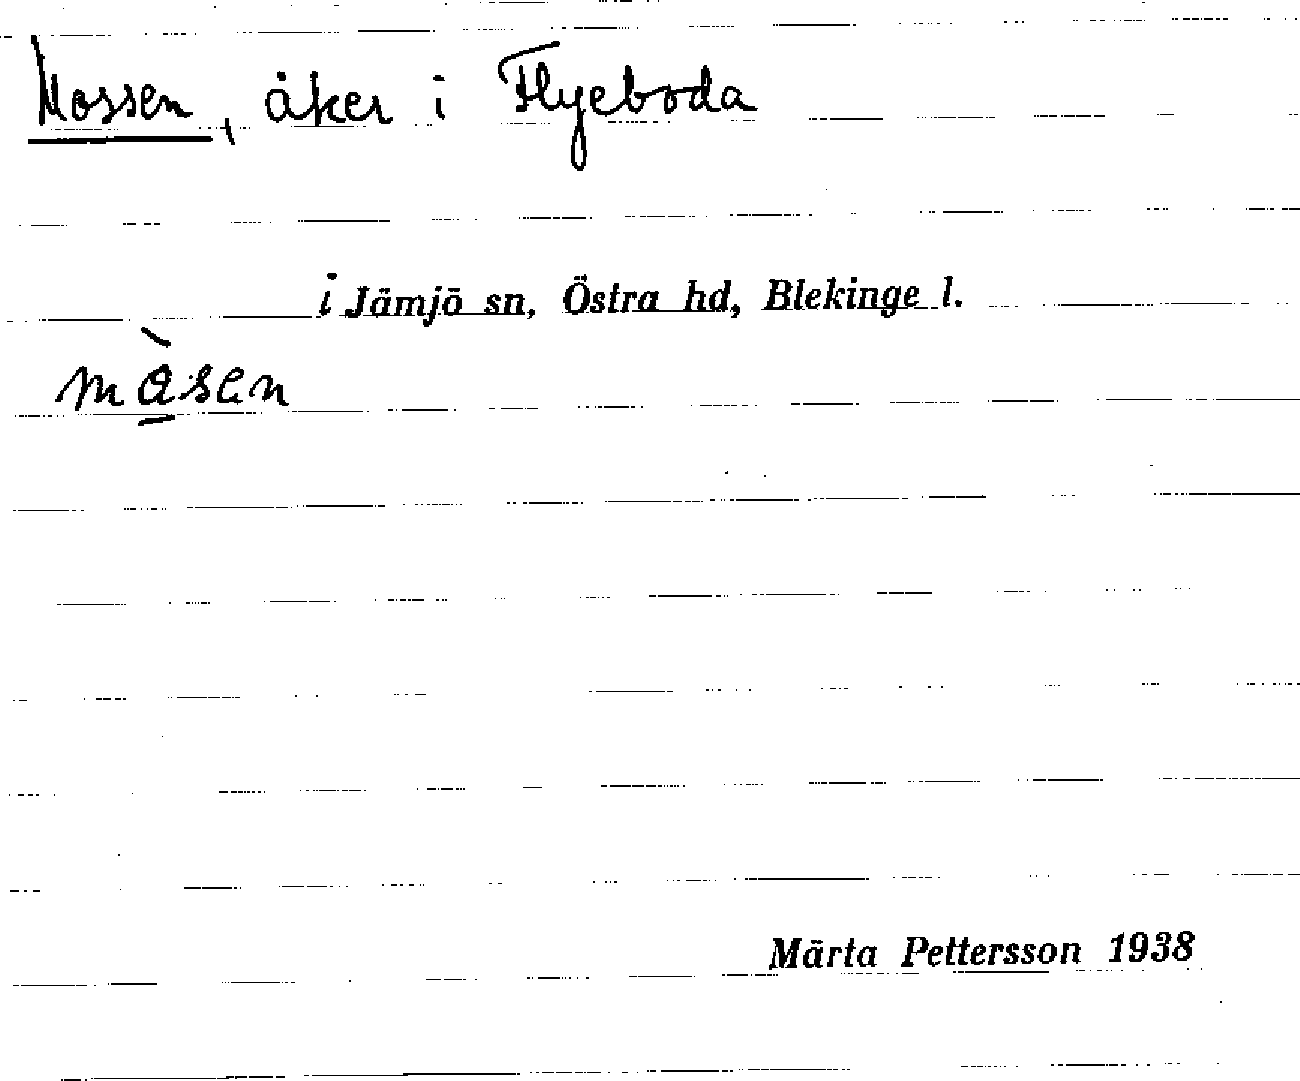 Mossen, åker i Flyeboda
i Jämjö sn, Östra hd, Blekinge l.
måsen
Märta Pettersson 1938